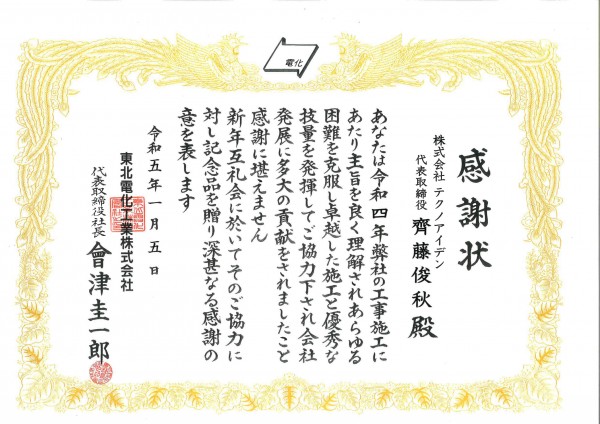 電化
感謝状
株式会社 テクノアイデン
代表取締役 齊藤俊秋殿
あなたは令和四年弊社の工事施工に
あたり主旨を良く理解されあらゆる
困難を克服し卓越した施工と優秀な
技量を発揮してご協力下され会社
発展に多大の貢献をされましたこと
感謝に堪えません
新年互礼会に於いてそのご協力に
対し記念品を贈り深甚なる感謝の
意を表します
令和五年一月五日
東北電化工業株式会社
代表取締役社長 會津圭一郎